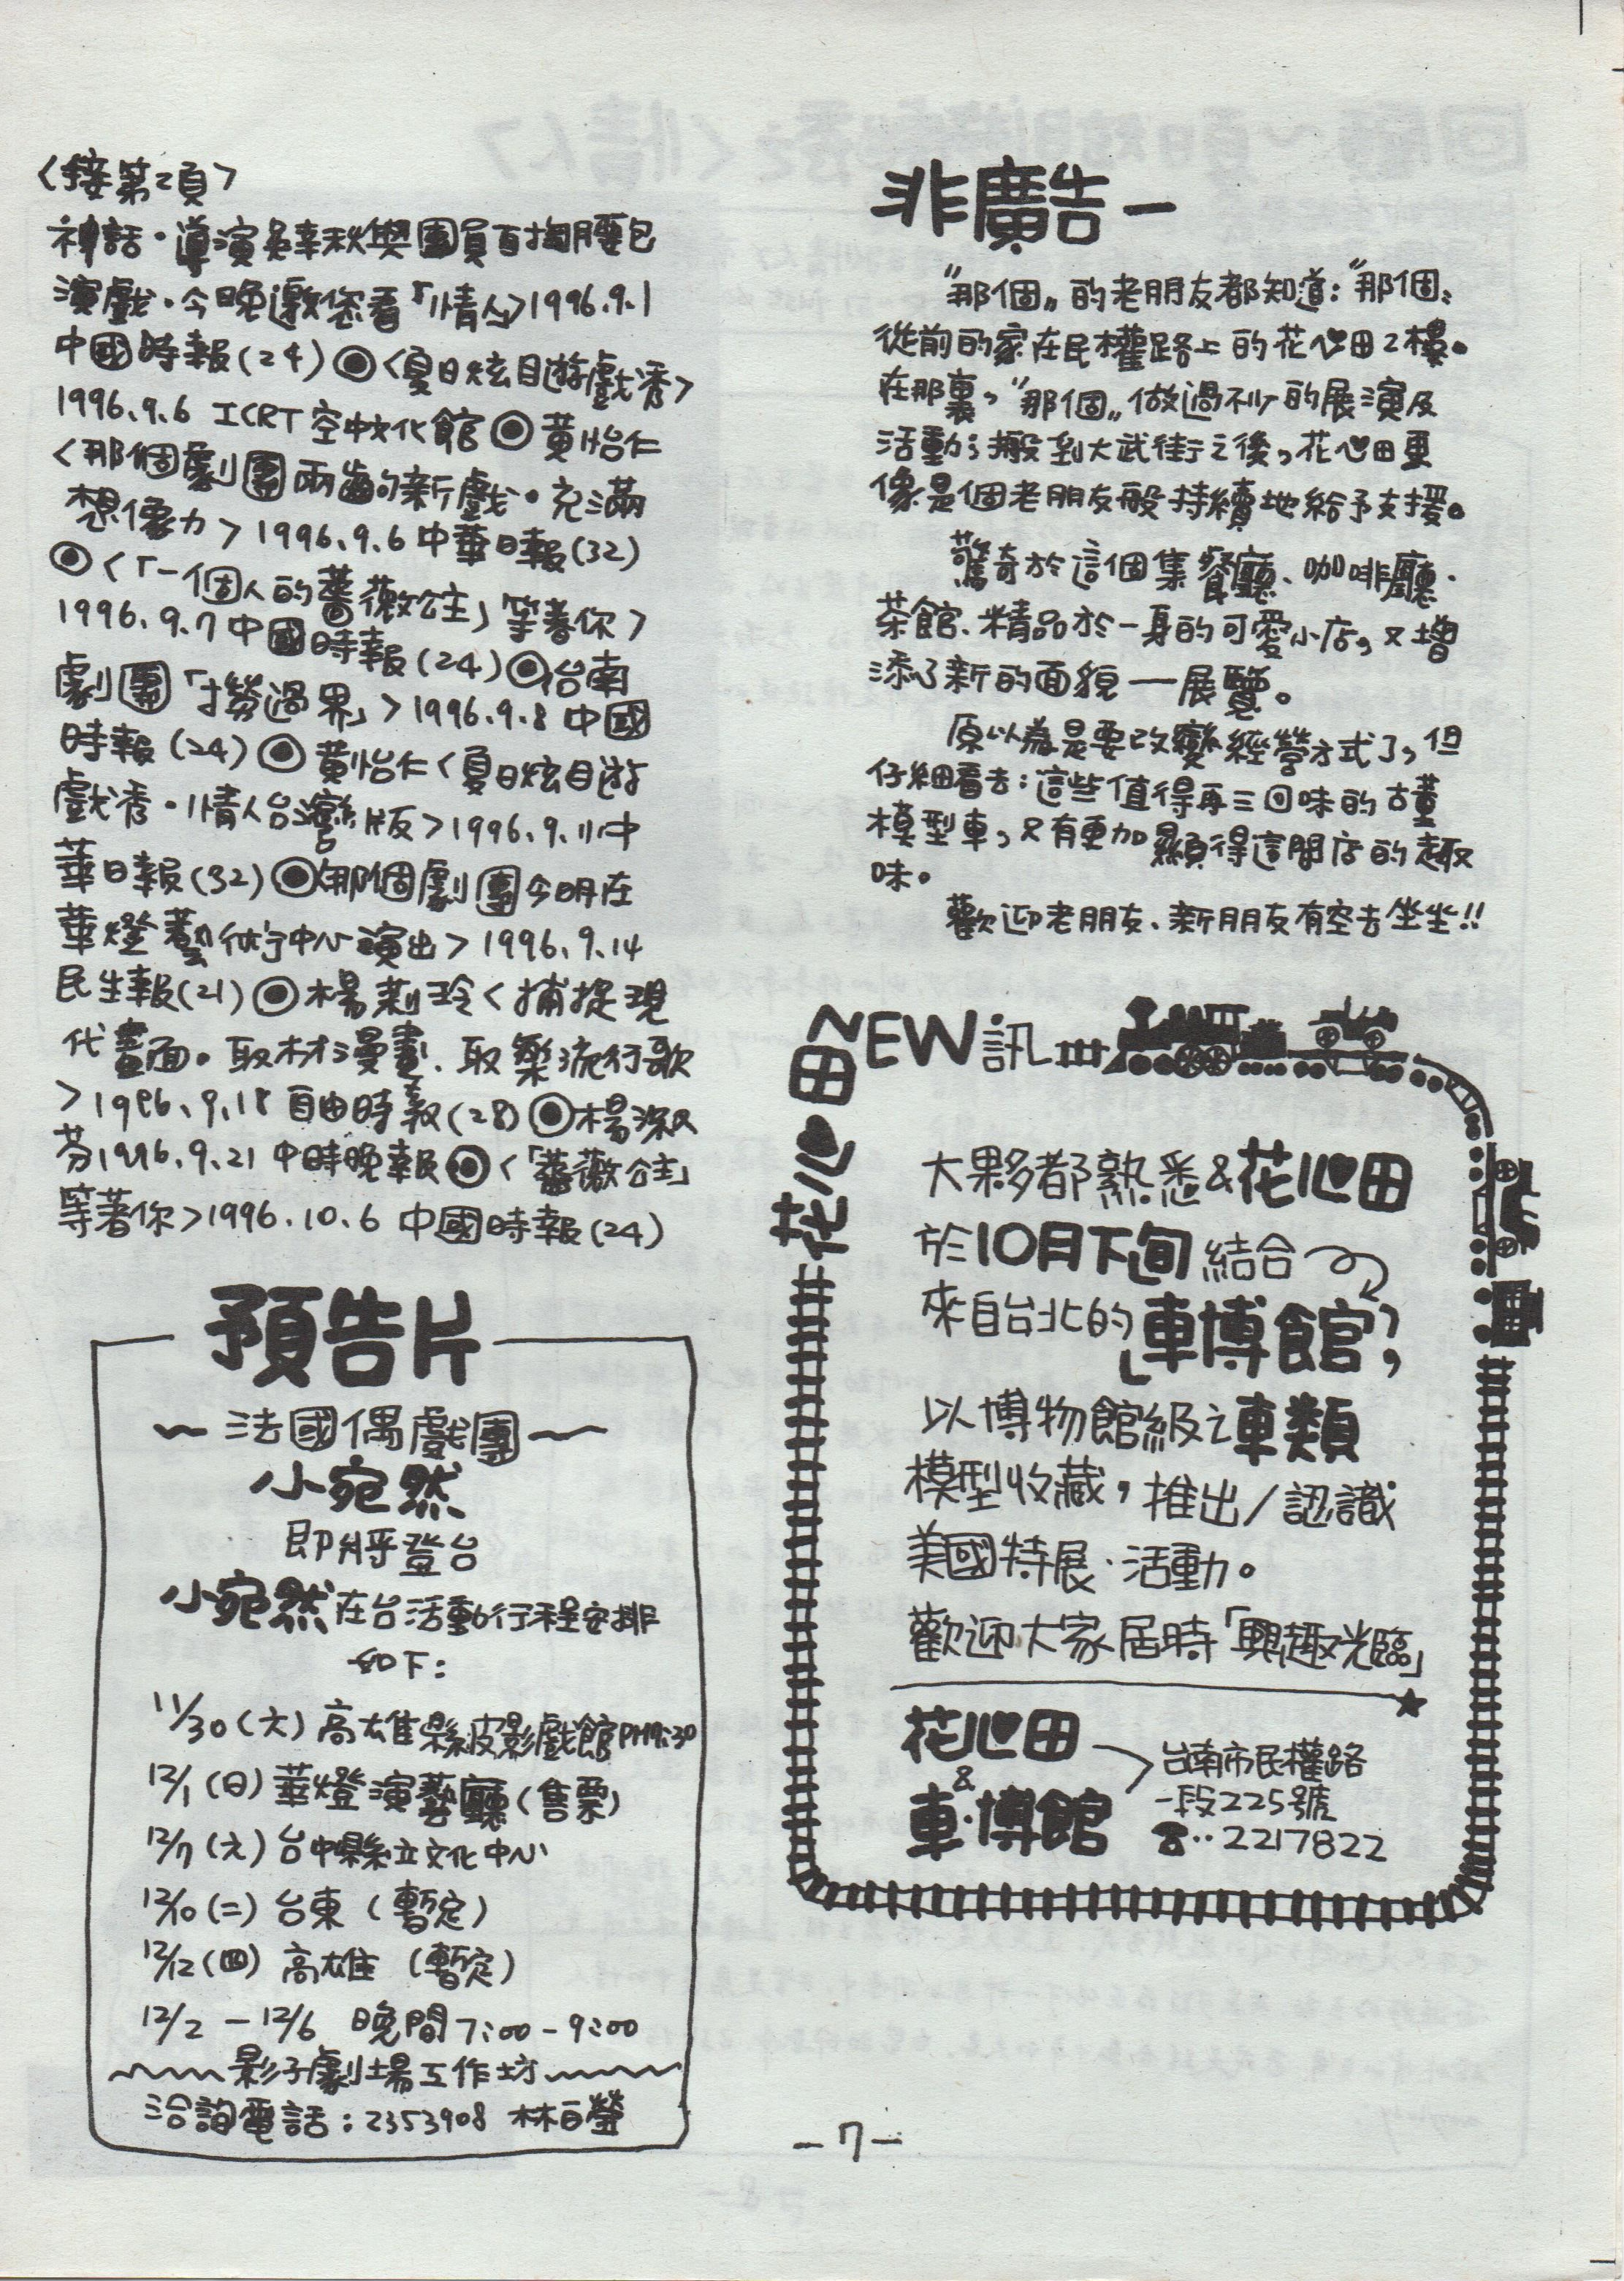 〈接第2頁〉
神話・導演吳幸秋與團員自掏腰包
演戲・今晚邀您看「情人」〉1996.9.1
中國時報(24)◎〈夏日炫目遊戲秀〉
1996.9.6 ICRT空中文化館◎黃怡仁
〈那個劇團兩齣的新戲・充滿
想像力〉1996.9.6中華日報(32)
◎〈「一個人的薔薇公主」等著你〉
1996.9.7中國時報(24)◎台南
劇團「撈過界」〉1996.9.8中國
時報(24)◎黃怡仁〈夏日炫目遊
戲秀・情人台灣版〉1996.9.11中
華日報(32)◎〈那個劇團今明在
華燈藝術中心演出〉1996.9.14
民生報(21)◎楊莉玲〈捕捉現
代畫面。取材漫畫、取樂流行歌
〉1996.9.18自由時報(28)◎楊淑
芬1996.9.21中時晚報◎〈「薔薇公主」
等著你〉1996.10.6 中國時報(24)
預告片
~法國偶戲團~
小宛然
即將登台
小宛然在台活動行程安排
如下:
11/30(六)高雄縣皮影戲館PM9:30
12/1(日)華燈演藝廳(售票)
12/7(六)台中縣立文化中心
12/10(二)台東(暫定)
12/12(四)高雄(暫定)
12/2 - 12/6 晚間7:00-9:00
~影子劇場工作坊~
洽詢電話:2353908 林白瑩
非廣告一
〝那個〞的老朋友都知道:〝那個〞
從前的家在民權路上的花心田2樓。
在那裏,〝那個〞做過不少的展演及
活動;搬到大武街之後,花心田更
像是個老朋友般持續地給予支援。
驚奇於這個集餐廳、咖啡廳、
茶館、精品於一身的可愛小店,又增
添了新的面貌—展覽。
原以為是要改變經營方式了,但
仔細看去:這些值得再三回味的古董
模型車,又有更加顯得這間店的趣
味。
歡迎老朋友、新朋友有空去坐坐!!
花心田NEW訊
大夥都熟悉&花心田
於10月下旬結合
來自台北的車博館,
以博物館級之車類
模型收藏,推出/認識
美國特展、活動。
歡迎大家屆時「興趣光臨」
花心田
&
車・博館
台南市民權路
一段225號
☎:2217822
-7-